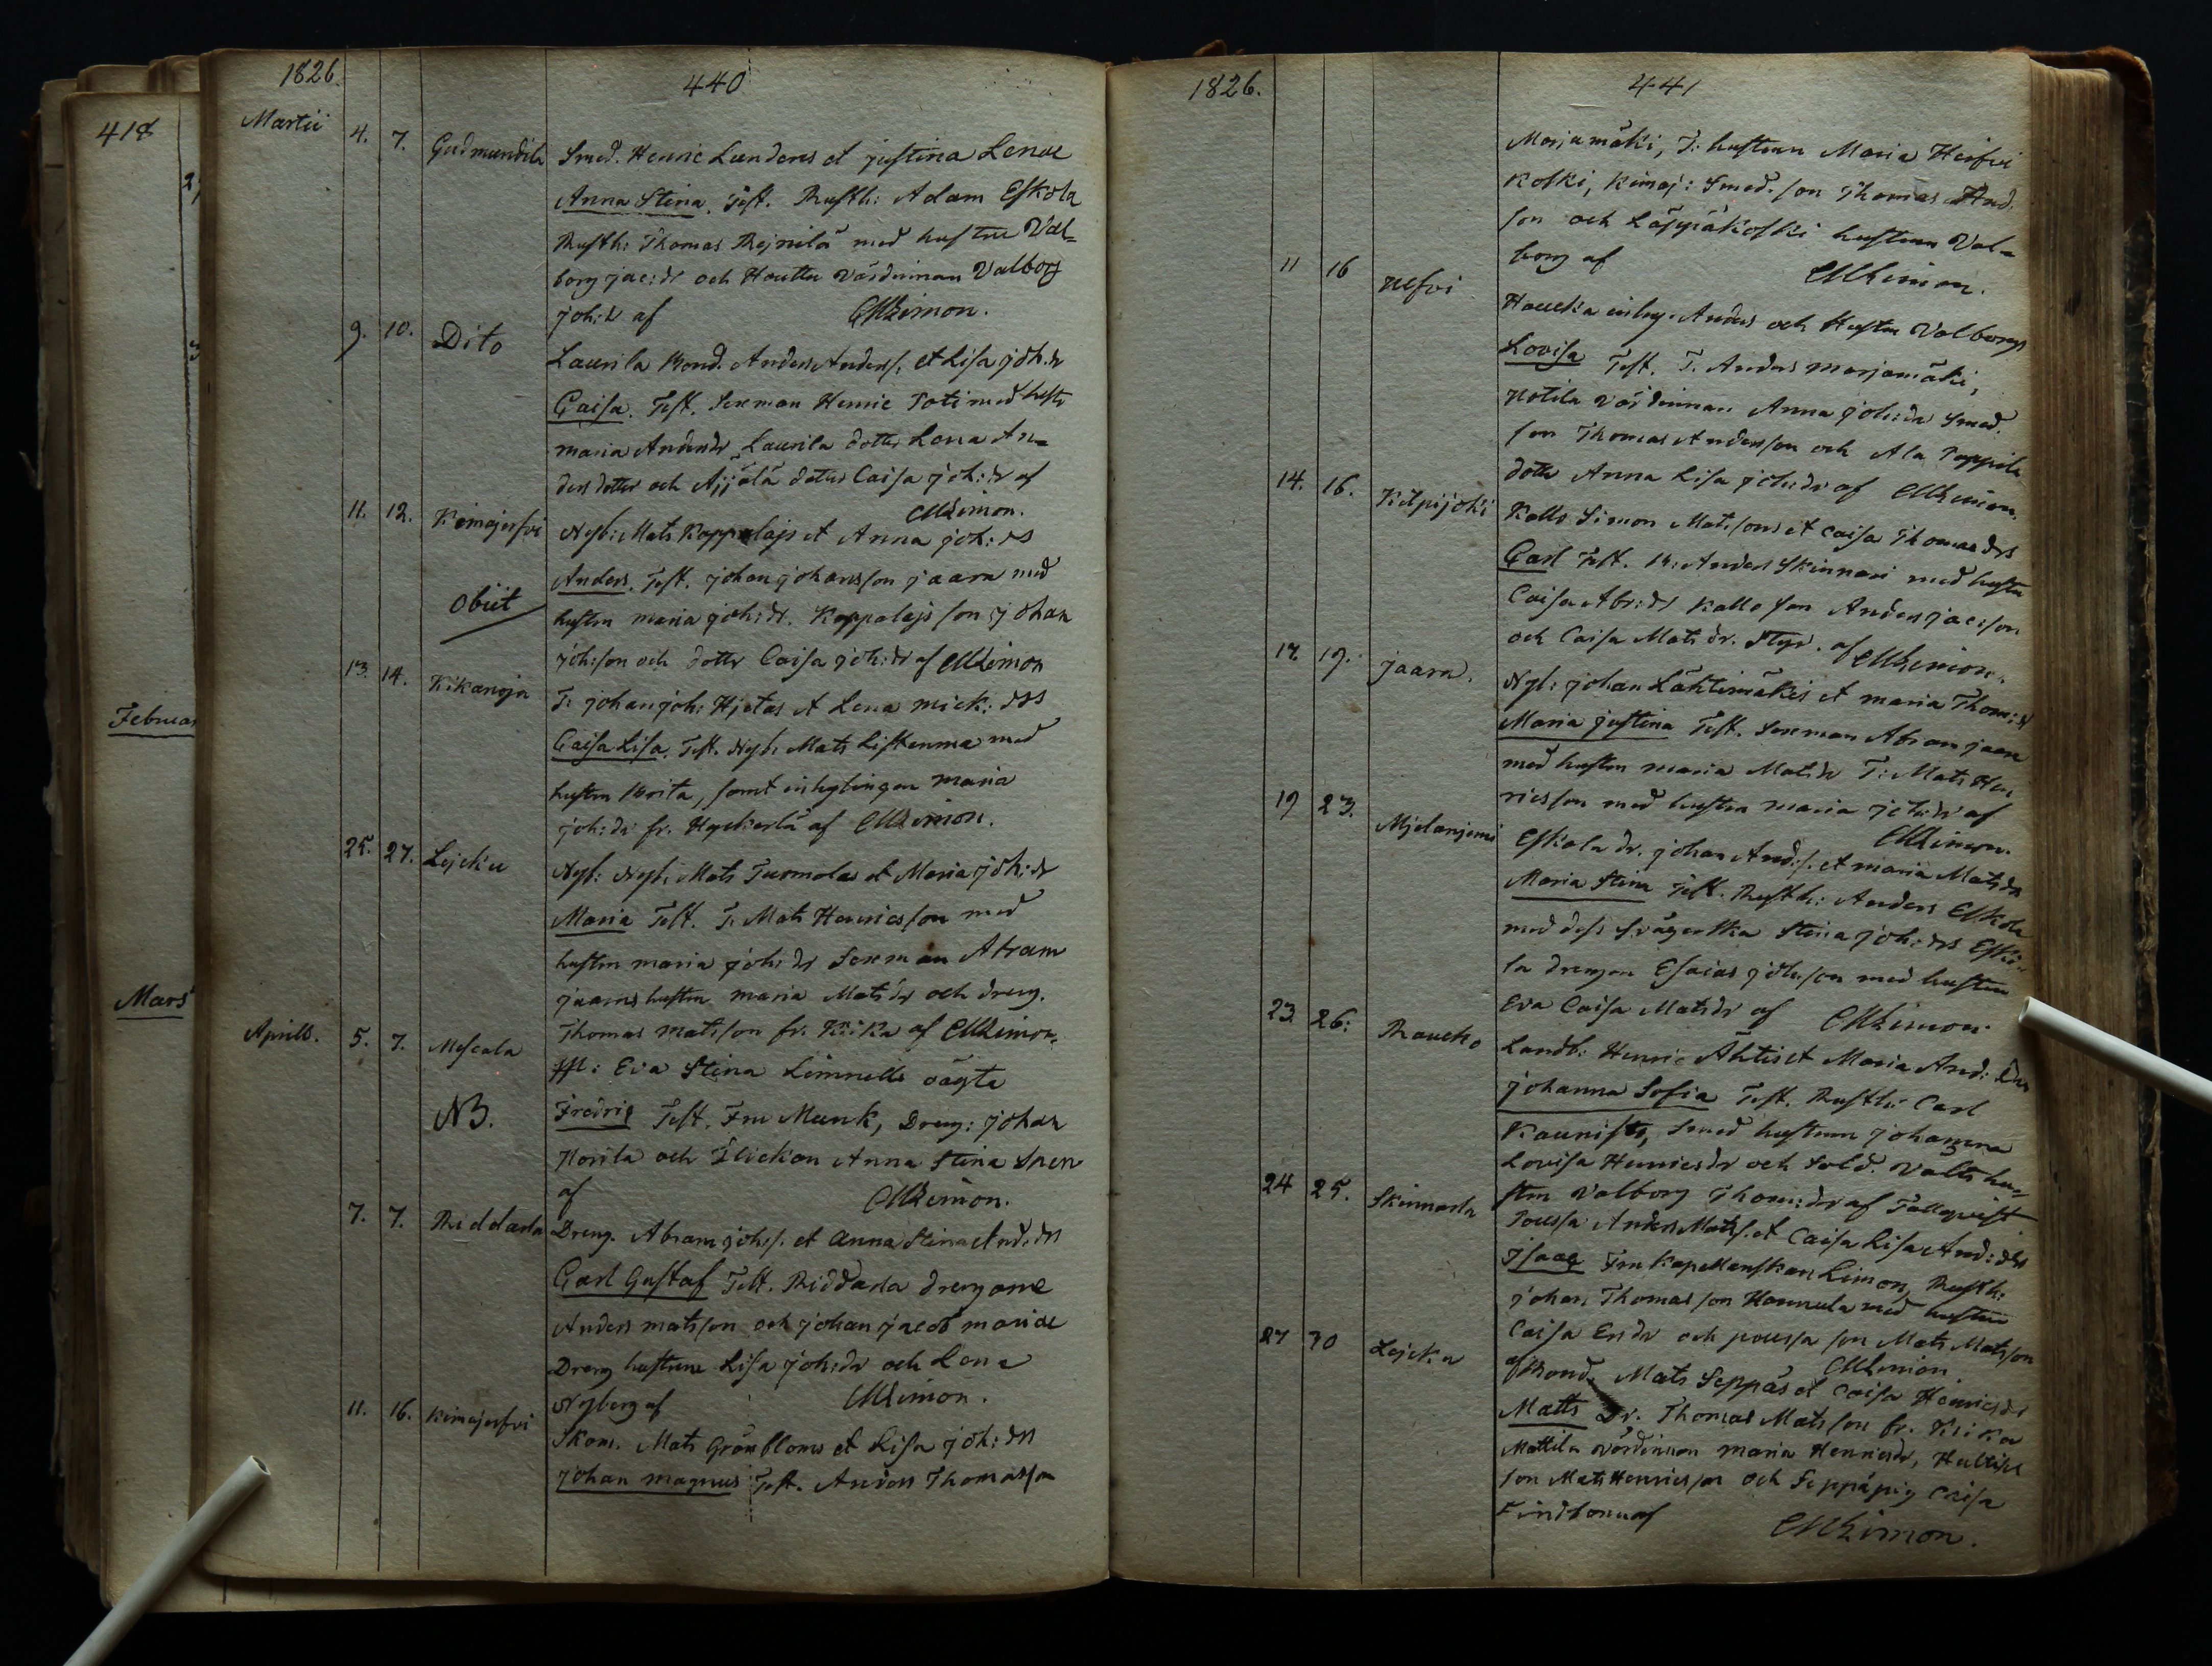 418
Februar
Mars
1826.
440
Martii
4. 7. Gudmundila Smed. Henric Lunders et justina Lenae
Anna Stina. Test. Rusth: Adam Eskola
Rusth: Thomas Rejnilä med hustru Val=
borg jac:dr och Houttu värdinnan Valborg
joh:dr af CMLimon.
9. 10. Dito
Laurila Bond. Anders Anders. et Lisa joh:dr
Caisa. Test. Sexman Henric Poti med hustr
maria Andersdr, Laurila dotter Lena An=
ders dotter och Äijälä dotter Caisa joh:dr af
CMLimon.
11. 12. Kimajerfvi Nyb: Mats Koppalajs et Anna joh:drs
Anders. Test. johan johansson jaara med
Obiit
hustru maria joh:dr. Koppalajs son johan
joh:son och dotter Caisa joh:dr af CMLimon
13. 14. Kikanoja
T. johan joh: Hjetas et Lena mick:drs
Caisa Lisa. Test. Nyb. Mats Liskenma med
hustru Brita, samt inhyslingen maria
joh:dr fr. Hyckerlä af CMLimon.
25. 27. Lejcku
Nyb: Nyb. Mats Turmolas et Maria joh:dr
Maria Test. T. Mats Henricsson med
hustru maria joh:dr Sexman Abram
jaaras hustru maria Matsdr och dreng.
Thomas matsson fr. Kiika af CMLimon.
Aprill. 5. 7. Mescala
Pl: Eva Stina Limnells oägta
NB. Fredrig Test. Fru Munk, Dreng: johan
Norila och Flickan Anna Stina Spen
af CMLimon.
7. 7. Riddarla Dreng. Abram joh:s. et Anna Stina And:drs
Carl Gustaf Test. Riddarla drengarne
Anders matsson och johan jacob mariae
Dreng hustrune Lisa joh:dr och Lena
Nyberg af CMLimon.
11. 16. Kimajerfvi
Skom. Mats Grönbloms et Lisa joh:drs
johan magnus Test. Anders Thomasson
1826.
441
Marjamäki, T: hustrun Maria Heisvi
koski, Kimaj: Smed. son Thomas And.
son och Läppäkoski hustrun Val=
borg af CMLimon.
11 16 Nefvi
Haucka inhys. Anders och Hustru Valborgs
Lovisa Test. T. Anders marjamäki,
Notila värdinnan Anna joh:dr Smed.
son Thomas Andersson och Ala Pappila
dotter Anna Lisa joh:dr af CMLimon.
14. 16. Kilpijoki
Kallo Simon Matssons et Caisa Thomas drs
Carl Test. B: Anders Skinnari med hustru
Caisa Abr:dr Kallo son Anders jac:son
och Caisa Mats dr. Styr. af CMLimon.
17. 19. jaara.
Nyb: johan Lähtimäkis et maria Thom:dr
Maria justina Test. Sexman Abram jaara
med hustru maria Matsdr T: Mats Hen
ricsson med hustru maria joh:dr af
CMLimon.
19 23. Mjelanjemi
Eskola dr. johan And:s. et maria Matsdr
Maria Stina Test. Rusth: Anders Eskola
med dess Svägerska Stina joh:drs Esko
la drengen Esaias joh:son med hustru
Eva Caisa Matsdr af CMLimon.
23. 26: Raucko
Landb: Henric Ahtis et Maria And: drs
johanna Sofia Test. Rusth: Carl
Kaunisto, Smed hustrun johanna
Lovisa Henricsdr och Sold. Valts hu=
stru Valborg Thom:dr af Tallqvist
24 25. Skinnarla
Poussa Anders Mats. et Caisa Lisa And:drs
jsaac Fru Kapellanskan Limon, Rusth:
johan Thomasson Hannula med hustru
Caisa Ersdr och poussa son Mats Matsson
af CMLimon
27 30 Lejcka
Bond. Mats Seppäs et Caisa Henricsdr
Matts Dr. Thomas Matsson fr. Kiika
Mattila värdinnan maria Henricsdr, Hultis
son Mats Henricsson och Seppäpig Caisa
Lindbom af
CMLimon.